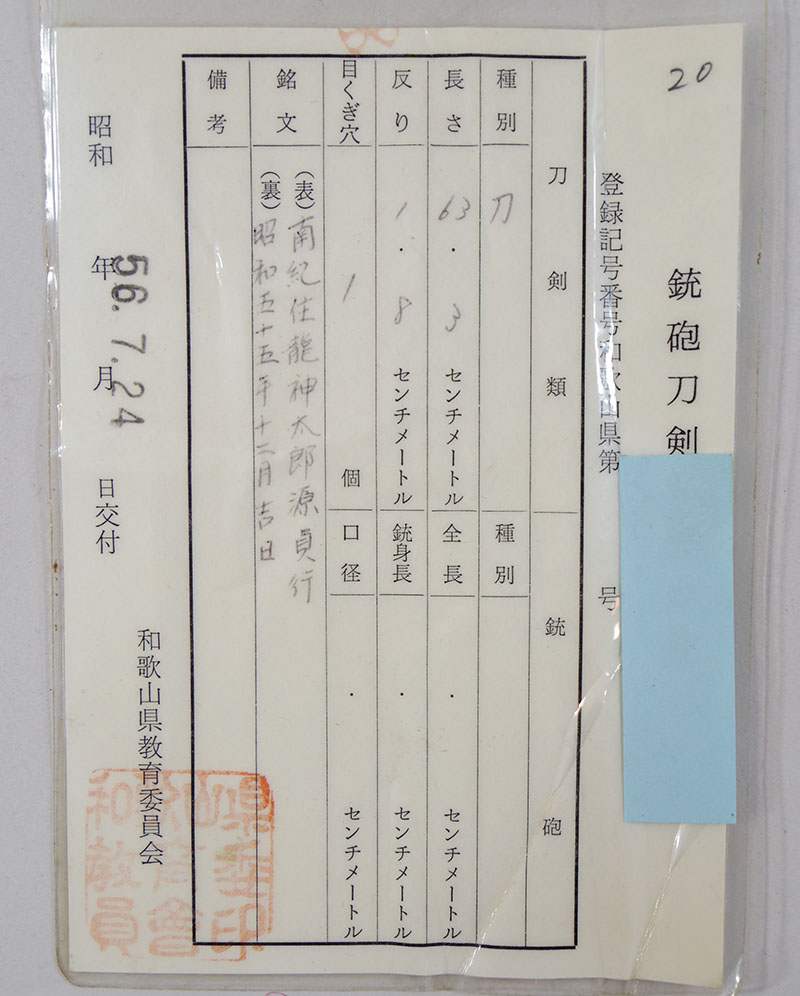 20
銃砲刀剣
登録記号番号和歌山県第 号
刀剣類 銃砲
種別 刀 種別
長さ 63.3 センチメートル 全長 . センチメートル
反り 1.8 センチメートル 銃身長 . センチメートル
目くぎ穴 1 個 口径 . センチメートル
銘文 (表) 南紀住龍神太郎源貞行
(裏) 昭和五十五年十二月吉日
備考
昭和 年 月 日交付
56.7.24
和歌山県教育委員会